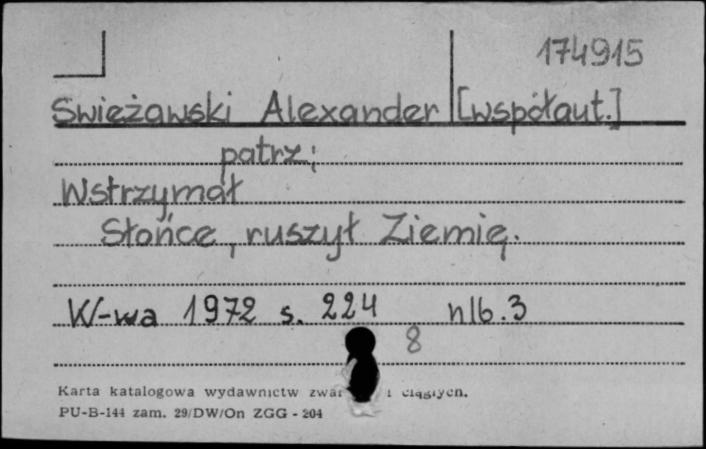 174915
Swieżawski Alexander [współaut.]
patrz:
Wstrzymał
Słońce, ruszył Ziemię.
W-wa 1972 s. 224 nlb. 3
8
Karta katalogowa wydawnictw i ciągłych.
PU-B-144 zam. 29/DW/On ZGG - 204